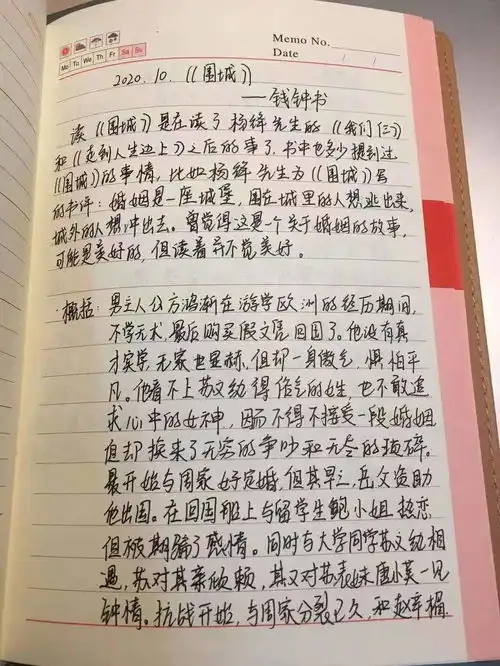 Memo No.
Mo Tu We Th Fr Sa Su
Date / /
2020.10.《围城》
——钱钟书
读《围城》是在读了杨绛先生的《我们仨》
和《走到人生边上》之后的事了.书中也多少提到过
《围城》的事情，比如杨绛先生为《围城》写
的书评：婚姻是一座城堡，围在城里的人想逃出来，
城外的人想冲出去。曾觉得这是一个关于婚姻的故事，
可能是美好的，但读着并不觉美好。
概括：男主人公方鸿渐在游学欧洲的经历期间，
不学无术，最后购买假文凭回国了。他没有真
才实学，无家世显赫，但却一身傲气，惧怕平
凡。他看不上苏文纨得俗气的姓，也不敢追
求心中的女神，因而不得不接受一段婚姻
但却换来了无穷的争吵和无尽的琐碎。
最开始与周家女订婚，但其早亡，岳父资助
他出国。在回国船上与留学生鲍小姐热恋
但被期骗了感情。同时与大学同学苏文纨相
遇，苏对其亲倾赖，其又对苏表妹唐小芙一见
钟情。抗战开始，与周家分裂已久，和赵辛楣